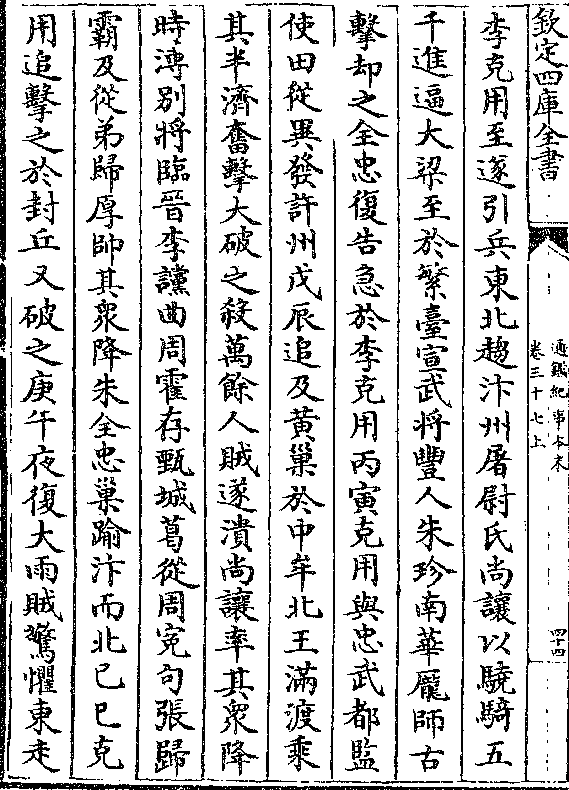 欽定四庫全書
通鑑紀事本末
卷三十七上
四十四
李克用至遂引兵東北趨汴州屠尉氏尚讓以驍騎五
千進逼大梁至於繁臺宣武將豐人朱珍南華龎師古
擊却之全忠復告急於李克用丙寅克用與忠武都監
使田從異發許州戊辰追及黄巢於中牟北王滿渡乘
其半濟奮擊大破之殺萬餘人賊遂潰尚讓率其衆降
時溥別將臨晉李讜曲周霍存甄城葛從周寃句張歸
霸及從弟歸厚帥其衆降朱全忠巢踰汴而北己巳克
用追擊之於封丘又破之庚午夜復大雨賊驚懼東走